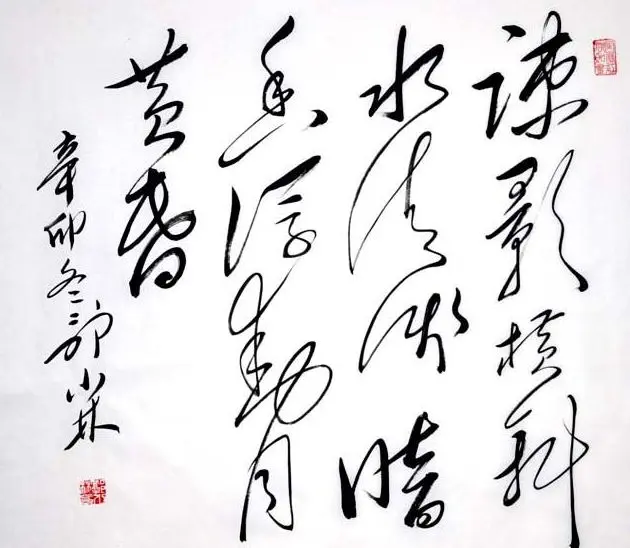 疎影横斜
水清浅暗
香浮動月
黄昏
辛卯冬郭小林